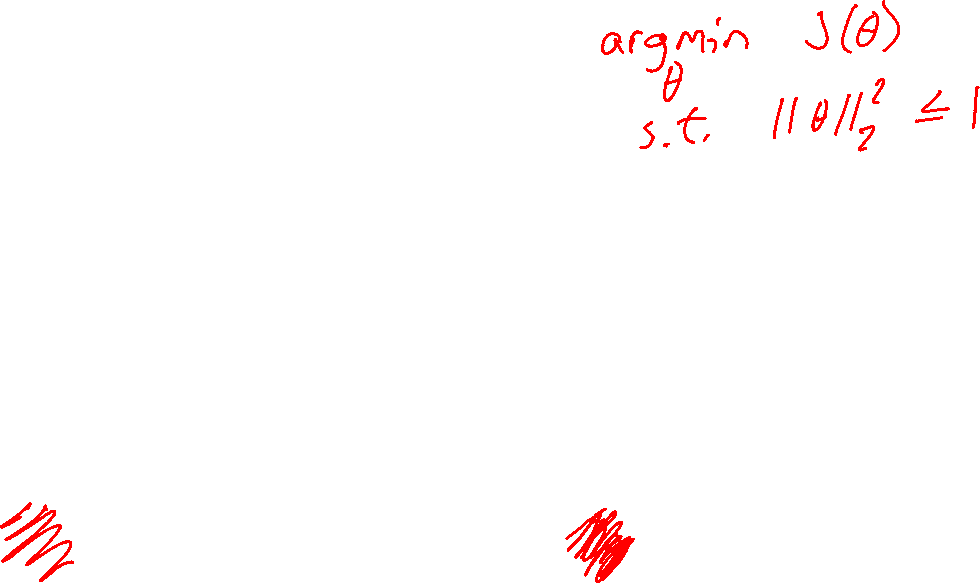 argmin J(θ)
θ
s.t. ||θ||₂² ≤ 1